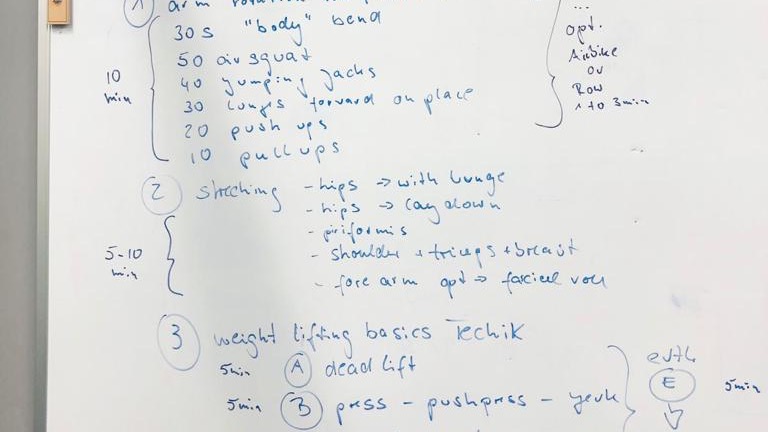 1 arm rotation
30 s "body" bend
50 air squat
40 yumping Jacks
30 lunges forward on place
20 push ups
10 pull ups
10 min
...
opt.
AirBike
or
Row
1 to 3 min
2 streching - hips → with lunge
- hips → lay down
- piriformis
- shoulder + triceps + breast
- fore arm opt → fasciel roll
5-10 min
3 weight lifting basics Technik
5min A dead lift
5min B press - pushpress - yerk
evtl.
E 5min